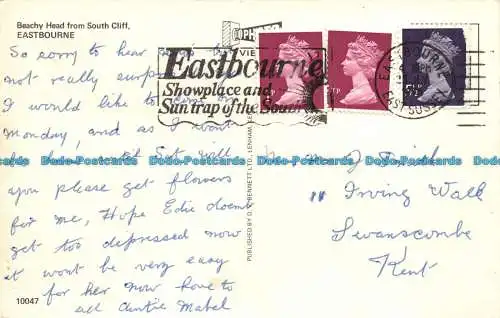 Beachy Head from South Cliff,
EASTBOURNE
So sorry to hear
not really surpris
I would like to
Monday, and as I won't
Sat will
you please get flowers
for me, Hope Edie doesn't
get too depressed now
it wont be very easy
for her now love to
all Auntie Mabel
10047
PUBLISHED BY D. V. BENNETT LTD., LENHAM, KE
OPH
VIE
Eastbourne
Showplace and
Sun trap of the South
EASTBOURNE
EAST SUSSEX
J Smith
11 Irving Walk
Swanscombe
Kent
Dodo-Postcards Dodo-Postcards Dodo-Postcards Dodo-Postcards